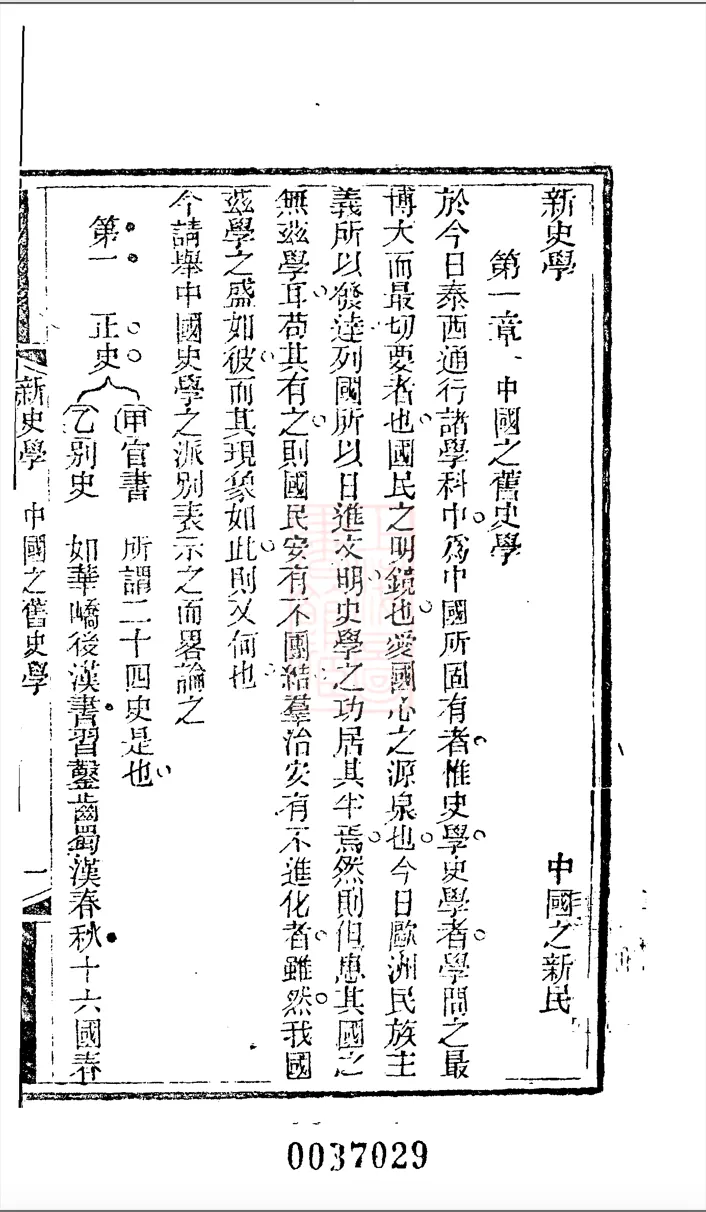 新史學　中國之新民
第一章、中國之舊史學
於今日泰西通行諸學科中。爲中國所固有者。惟史學。史學者。學問之最
博大而最切要者也。國民之明鏡也。愛國心之源泉也。今日歐洲民族主
義所以發達列國所以日進文明。史學之功居其半焉。然則但患其國之
無茲學耳。苟其有之。則國民安有不團結。羣治安有不進化者。雖然。我國
茲學之盛如彼。而其現象如此。則又何也。
今請舉中國史學之派別表示之而畧論之
第一　正史
(甲)官書　所謂二十四史是也。
(乙)別史　如華嶠後漢書・習鑿齒蜀漢春秋・十六國春
新史學　中國之舊史學　一
0037029